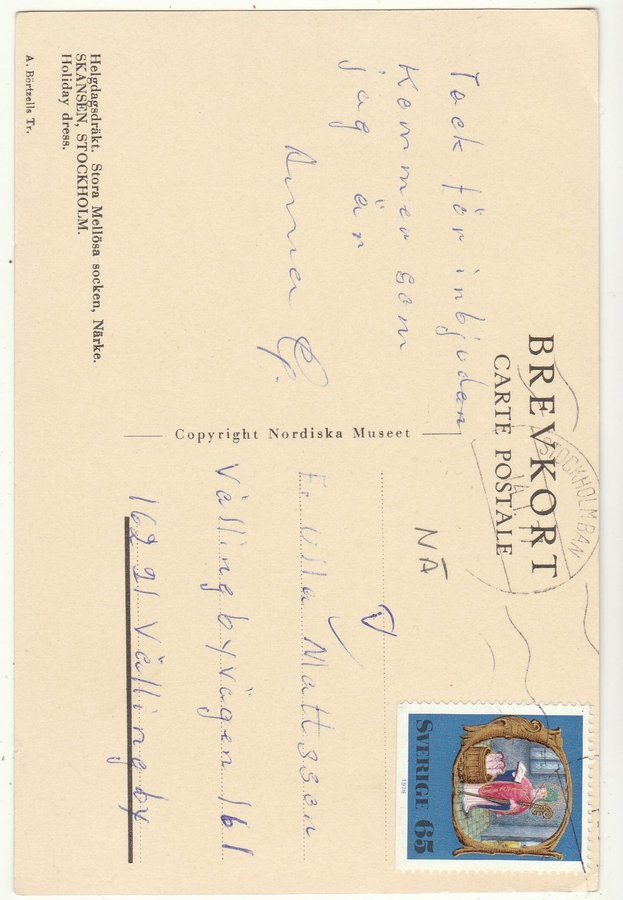 BREVKORT
CARTE POSTALE
STOCKHOLM BAN
Tack för inbjudan
Kommer som
jag är
Anna G.
Helgdagsdräkt. Stora Mellösa socken, Närke.
SKANSEN, STOCKHOLM.
Holiday dress.
A. Börtzells Tr.
Copyright Nordiska Museet
NÄ
SVERIGE 65
1976
Mattsson
Vällingbyvägen 161
162 21 Vällingby